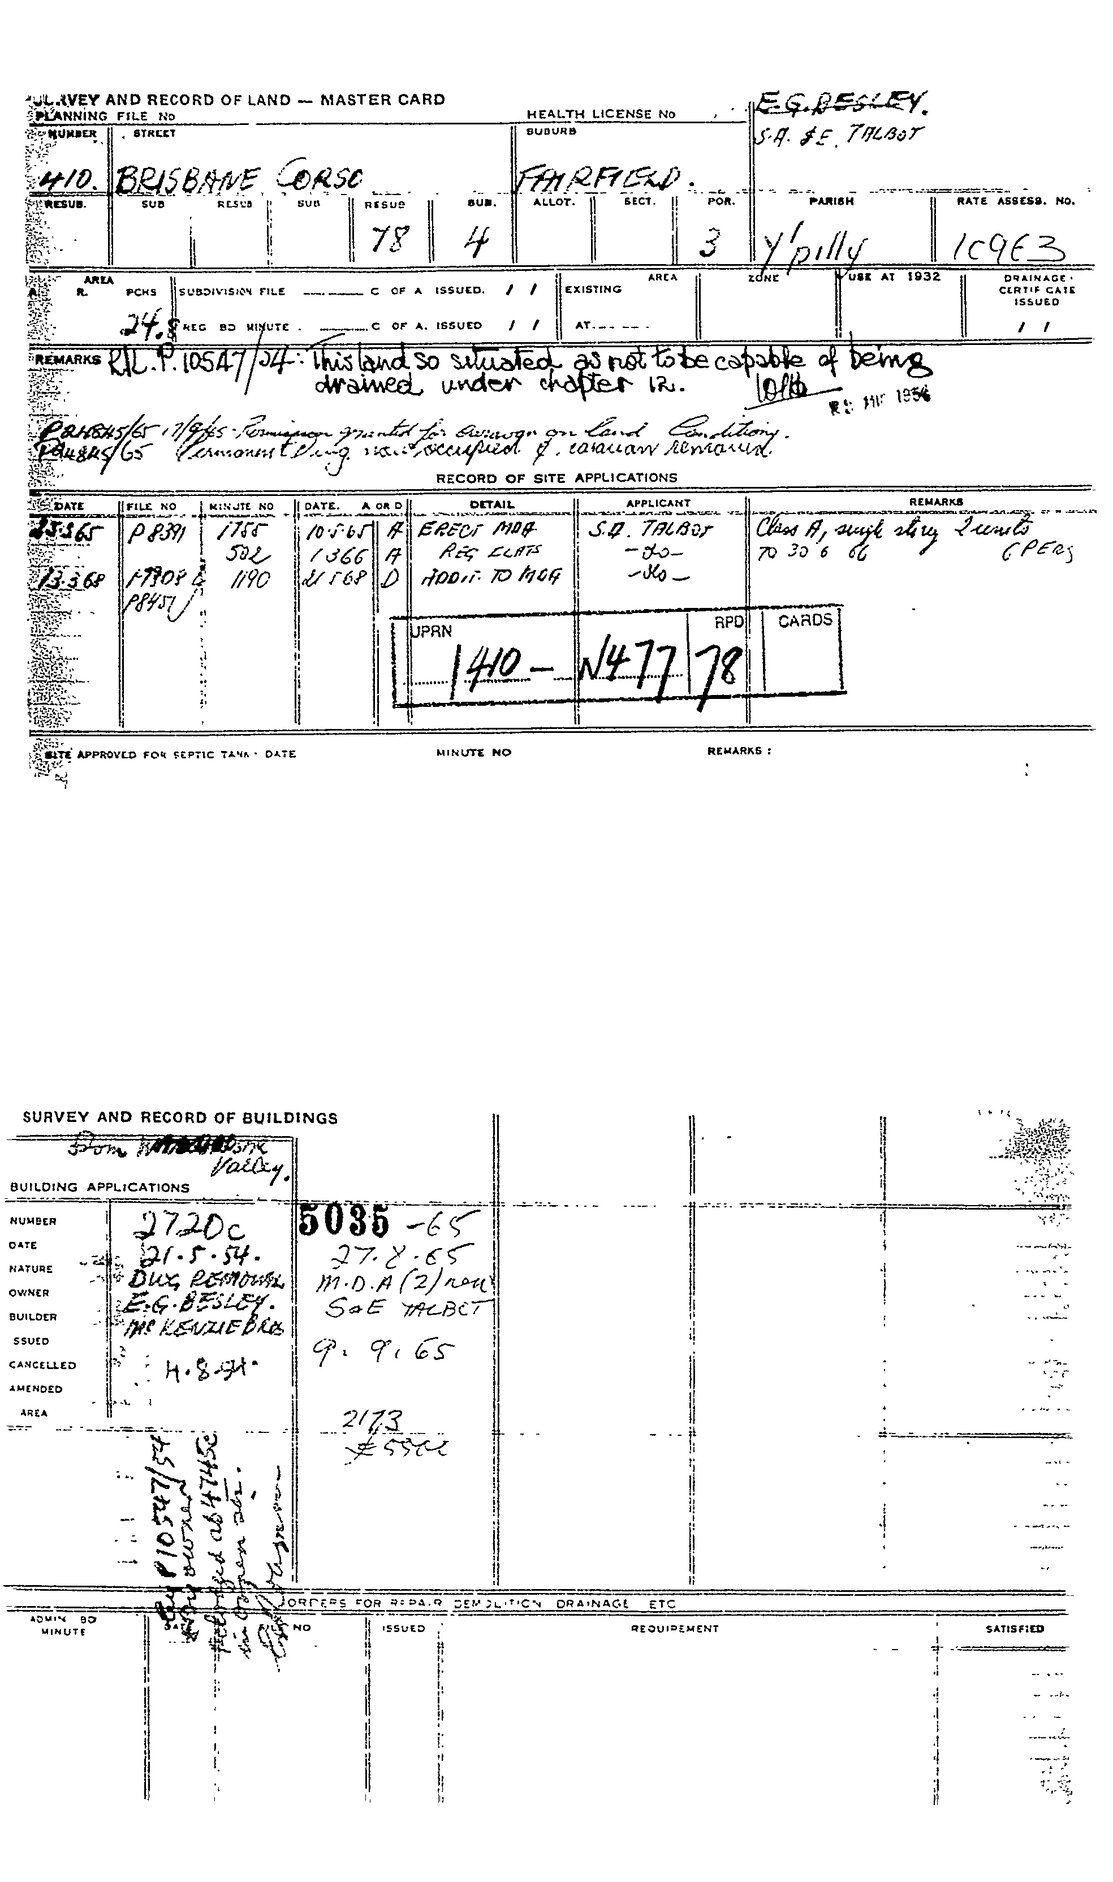 SURVEY AND RECORD OF LAND — MASTER CARD
PLANNING FILE No
HEALTH LICENSE No
E.G. BESLEY.
S.A. & E. TALBOT
NUMBER STREET SUBURB
410. BRISBANE CORSO FAIRFIELD.
RESUB. SUB RESUB SUB RESUB SUB. ALLOT. SECT. POR. PARISH RATE ASSESS. NO.
78 4 3 Y'pilly
AREA
R. PCHS
24.8
SUBDIVISION FILE C OF A ISSUED. / /
REG BD MINUTE. C OF A. ISSUED / /
EXISTING AREA
AT
ZONE
USE AT 1932
DRAINAGE CERTIFICATE ISSUED
/ /
REMARKS P.10547/54: This land so situated as not to be capable of being
drained under chapter 12.
/65 17/9/65 Permission granted for caravan on land Conditions.
/65 Permanent Dwg occupied & caravan removed.
RECORD OF SITE APPLICATIONS
DATE FILE NO MINUTE NO DATE. A OR D DETAIL APPLICANT REMARKS
1755 10.5.65 A ERECT MDA S.A. TALBOT Class A, single storey 2 units
502 1 3 66 A REG FLATS —do— TO 30 6 66
13.3.68 1190 21 5 68 D ADDIT. TO MDA —do—
P8451/
UPRN RPD CARDS
1410 — N477 78
SITE APPROVED FOR SEPTIC TANK: DATE MINUTE NO REMARKS :
SURVEY AND RECORD OF BUILDINGS
from
Valley.
BUILDING APPLICATIONS
NUMBER 2720c 5035 -65
DATE 21.5.54. 27.8.65
NATURE DWG REMOVAL M.D.A (2) new
OWNER E.G. BESLEY. S & E TALBOT
BUILDER McKENZIE BROS
ISSUED 9.9.65
CANCELLED 4.8.54.
AMENDED
AREA 2173
P10547/54
by owner
ORDERS FOR REPAIR DEMOLITION DRAINAGE ETC
ADMIN BD MINUTE DATE NO ISSUED REQUIREMENT SATISFIED